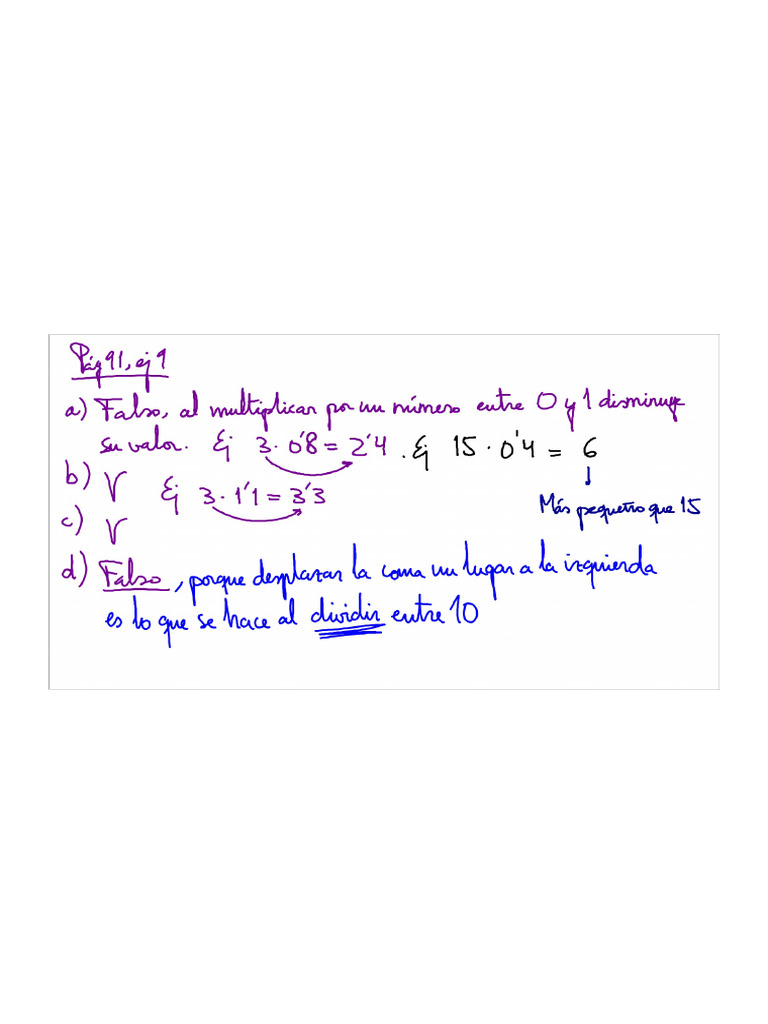 Pág 91, ej 9
a) Falso, al multiplicar por un número entre 0 y 1 disminuye
su valor. Ej 3·0'8 = 2'4. Ej 15·0'4 = 6
b) V Ej 3·1'1 = 3'3
Más pequeño que 15
c) V
d) Falso, porque desplazar la coma un lugar a la izquierda
es lo que se hace al dividir entre 10